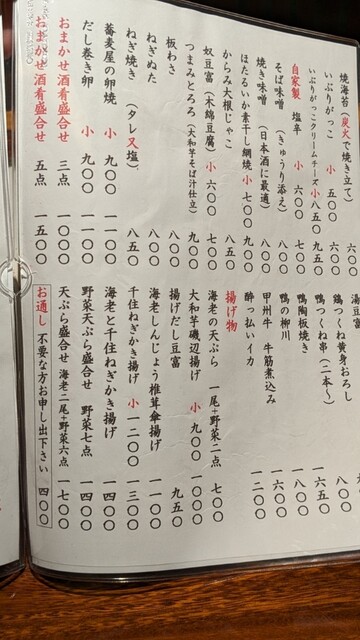 焼海苔（炭火で焼き立て） 六〇〇
いぶりがっこ 小 五〇〇 六〇〇
いぶりがっこクリームチーズ 小 八五〇 九五〇
自家製 塩辛 小 六〇〇 七〇〇
そば味噌（きゅうり添え） 八〇〇
焼き味噌（日本酒に最適） 八〇〇
ほたるいか素干し網焼 小 七〇〇 九〇〇
からみ大根じゃこ 八五〇
奴豆富（木綿豆腐） 小 六〇〇 七〇〇
つまみとろろ（大和芋そば汁仕立） 九〇〇
板わさ 八〇〇
ねぎぬた 八〇〇
ねぎ焼き（タレ又塩） 八五〇
蕎麦屋の卵焼 小 九〇〇 一一〇〇
だし巻き卵 小 九〇〇 一一〇〇
おまかせ酒肴盛合せ 三点
おまかせ酒肴盛合せ 五点 一五〇〇
湯豆富
鶏つくね黄身おろし
鴨つくね串（二本〜） 八〇〇
鴨陶板焼き 一六五〇
鴨の柳川 一八〇〇
甲州牛 牛筋煮込み 一六〇〇
酔っ払いイカ 一二〇〇
揚げ物
海老の天ぷら 一尾＋野菜二点 七〇〇
大和芋磯辺揚げ 小 九〇〇 一〇〇〇
揚げだし豆富 九五〇
海老しんじょう椎茸傘揚げ 一一〇〇
千住ねぎかき揚げ 小 一二〇〇 一三〇〇
海老と千住ねぎかき揚げ 一四〇〇
野菜天ぷら盛合せ 野菜七点 一四〇〇
天ぷら盛合せ 海老二尾＋野菜六点 一七〇〇
お通し 不要な方お申し出下さい 四〇〇